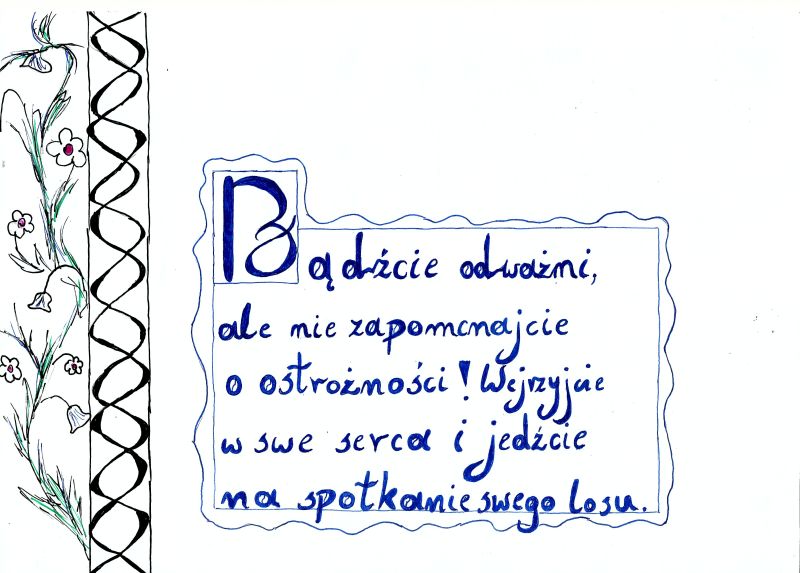 Bądźcie odważni,
ale nie zapomcnajcie
o ostrożności! Wejrzyjcie
w swe serca i jedźcie
na spotkanie swego losu.